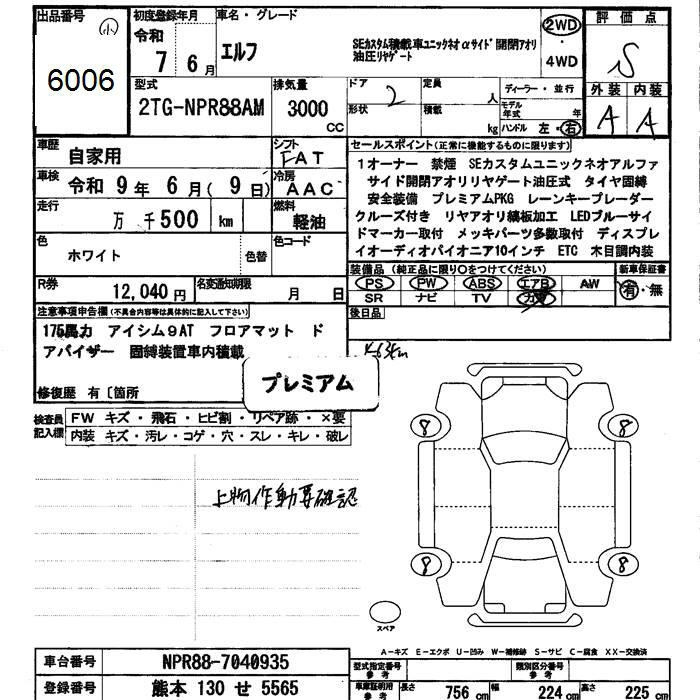 出品番号 小
6006
初度登録年月 令和 7 6月
車名・グレード
エルフ
SEカスタム積載車ユニックネオαサイド開閉アオリ
油圧リヤゲート
2WD
・
4WD
評価点
S
外装 内装
A A
型式
2TG-NPR88AM
排気量
3000
CC
ドア 2 定員 人
形状 積載 kg
ディーラー・並行
モデル年式 年
ハンドル 左・右
車歴
自家用
シフト
FAT
車検
令和 9年 6月( 9日)
冷房
AAC
走行
万 千500 km
燃料
軽油
色
ホワイト
色替
色コード
R券
12,040円
名変通知期限
月 日
セールスポイント(正常に機能するものに限ります)
1オーナー 禁煙 SEカスタムユニックネオアルファ
サイド開閉アオリリヤゲート油圧式 タイヤ固縛
安全装備 プレミアムPKG レーンキープレーダー
クルーズ付き リヤアオリ縞板加工 LEDブルーサイ
ドマーカー取付 メッキパーツ多数取付 ディスプレ
イオーディオパイオニア10インチ ETC 木目調内装
装備品(純正品に限り○をつけてください)
PS PW ABS エアB AW
SR ナビ TV カワ
新車保証書
有・無
後日品
注意事項申告欄(不具合内容等は具体的に記入して下さい)
175馬力 アイシム9AT フロアマット ド
アバイザー 固縛装置車内積載
修復歴 有〔箇所
プレミアム
検査員記入欄
FW キズ・飛石・ヒビ割・リペア跡・×要
内装 キズ・汚レ・コゲ・穴・スレ・キレ・破レ
上物作動要確認
8 8
8 8
スペア
A―キズ E―エクボ U―凹み W―補修跡 S―サビ C―腐食 XX―交換済
車台番号 NPR88-7040935
登録番号 熊本 130 せ 5565
型式指定番号 参考
類別区分番号 参考
車庫証明用 参考
長さ 756 cm 幅 224 cm 高さ 225 cm